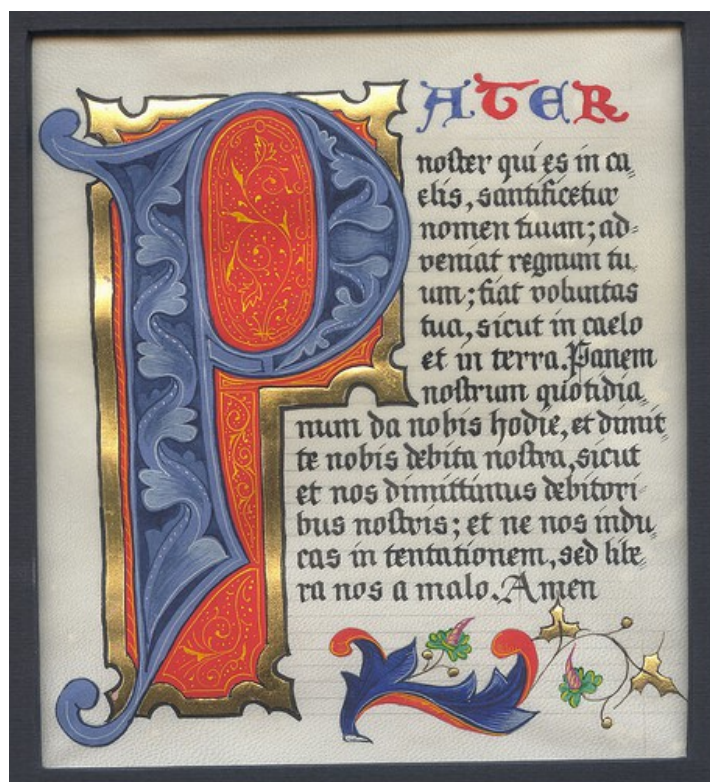 PATER
noster qui es in ca
elis, santificetur
nomen tuum; ad-
veniat regnum tu
um; fiat voluntas
tua, sicut in caelo
et in terra. Panem
nostrum quotidia
num da nobis hodie, et dimit
te nobis debita nostra, sicut
et nos dimittimus debitori
bus nostris; et ne nos indu
cas in tentationem, sed libe
ra nos a malo. Amen